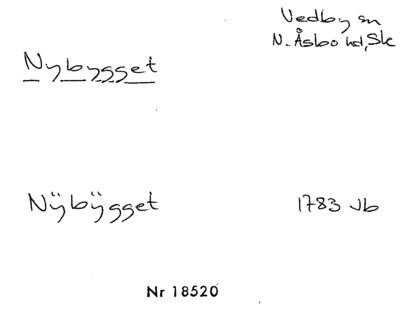 Vedby sn
N. Åsbo hd, Sk
Nybygget
Nÿbÿgget
1783 Jb
Nr 18520